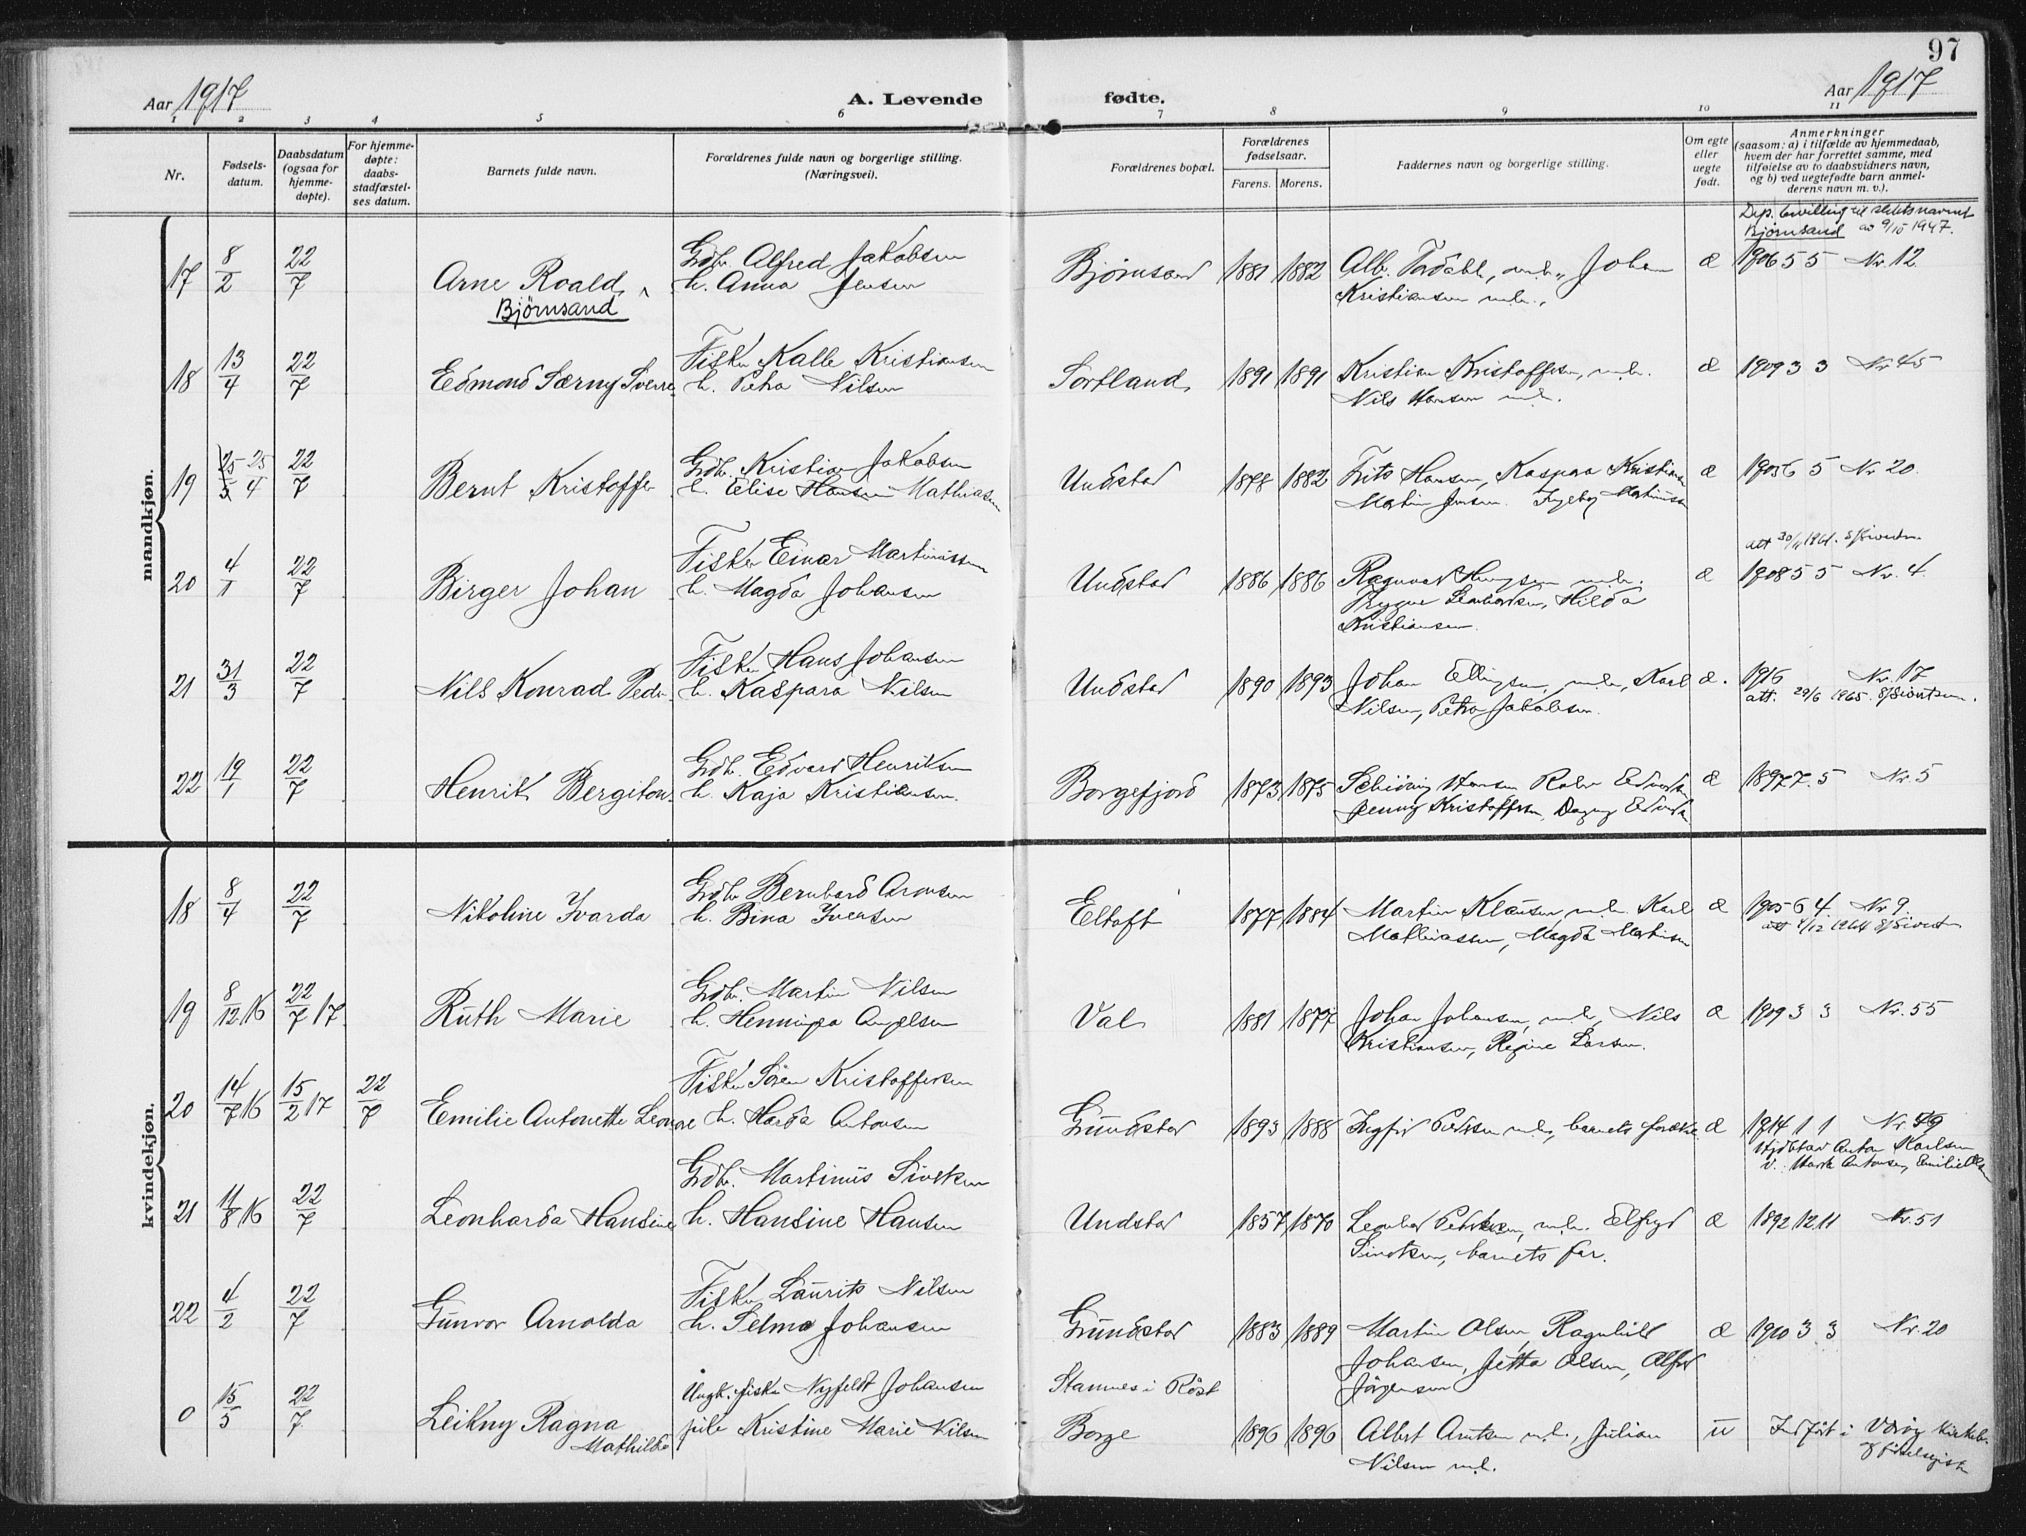 97
Aar 1917
A. Levende fødte.
Aar 1917
1 2 3 4 5 6 7 8 9 10 11
Nr.
Fødsels-
datum.
Daabsdatum
(ogsaa for
hjemme-
døpte).
For hjemme-
døpte:
daabs-
stadfæstel-
ses datum.
Barnets fulde navn.
Forældrenes fulde navn og borgerlige stilling.
(Næringsvei).
Forældrenes bopæl.
Forældrenes
fødselsaar.
Farens. Morens.
Faddernes navn og borgerlige stilling.
Om egte
eller
uegte
født.
Anmerkninger
(saasom: a) i tilfælde av hjemmedaab,
hvem der har forrettet samme, med
tilføielse av to daabsvidners navn,
og b) ved uegtefødte barn anmel-
derens navn m. v.).
mandkjøn.
Dep. bevilling til slektsnavnet
Bjørnsand av 9/10 1947.
Gdbr. Alfred Jakobsen
17 8/2 22/7 Arne Roald h. Anna Jensen Bjørnsand 1881 1882 Alb. Tordahl, m.h., Johan æ 1906 5 5 Nr 12.
Bjørnsand
Kristiansen m.h.,
Fisker Kalle Kristiansen
18 13/4 22/7 Edmond Særny Sverre h. Petra Nilsen Sortland 1891 1891 Kristian Kristoffersen, m.h. æ 1909 3 3 Nr 45
Nils Hansen m.h.
Gdbr. Kristian Jakobsen
19 25/3 25/4 22/7 Bernt Kristoffer h. Elise Hansen Mathiasen Undstad 1878 1882 Frits Hansen, Kaspara Kristiansen æ 1905 6 5 Nr 20.
Martin Jensen. Ingeborg Martinussen
att 30/11 1961. S/Sivertsen
Fisker Einar Martinussen
20 4/1 22/7 Birger Johan h. Magda Johansen Undstad 1886 1886 m.h. æ 1908 5 5 Nr. 4.
Hilda
Kristiansen.
Fisker Hans Johansen
21 31/3 22/7 Nils Konrad Peder h. Kaspara Nilsen Undstad 1890 1893 Johan Ellingsen, m.h., Karl æ. 1916 Nr. 17
Nilsen, Petra Jakobsen. att. 29/6 1965. S/Sivertsen.
Gdbr. Edvard Henriksen
22 19/1 22/7 Henrik Bergiton h. Kaja Kristiansen. Borgefjord 1873 1875 Hansen æ 1897 7. 5 Nr 5
Jenny Kristoffersen, Dagny
kvindekjøn.
Gdbr Bernhard Aronsen
18 8/4 22/7 Nikoline Ivarda h. Bina Iversen Eltoft 1877 1884 Martin Klausen, m.h. Karl æ 1905 6 4. Nr 9.
Mathiassen, Magda att 4/12 1964 S/Sivertsen
Gdbr. Martin Nilsen
19 8/12 16 22/7 17. Ruth Marie h. Henninga Angelsen Val 1881 1877 Johan Johansen, m.h., Nils æ 1909 3 3 Nr. 55
Kristiansen, Regine Larsen.
Fisker Sören Kristoffersen
20 14/7 16 15/2 17 22/7 Emilie Antonette Leonore h. Harda Antonsen Grundstad 1893 1888 Ingfrid Pedersen m.h., barnets forældre æ 1914 1 1 Nr. 49
Hjdøbt av Anton Karlsen
v. Antonsen, Emilie
Gdbr. Martinus Sivertsen
21 11/8 16 22/7 Leonharda Hansine h. Hansine Hansen Undstad 1857 1870 Leonhard m.h. Elfryd æ 1892 12. 11 Nr. 51
barnets far.
Fisker Laurits Nilsen
22 4/2 22/7 Gunvor Arnolda h. Selma Johansen Grundstad 1883 1889 Martin Olsen, Ragnhild æ 1910 3 3 Nr. 20
Johansen, Jetta Olsen, Alfred
Jörgensen
Ungk. fisker Nyfeldt Johansen Stamnes i Röst
0 15/5 22/7 Leikny Ragna pike Kristine Marie Nilsen Borge 1896 1896 Albert m.h., Julian u Indført i Værøy kirkeb.
Mathilde
Nilsen m.h.